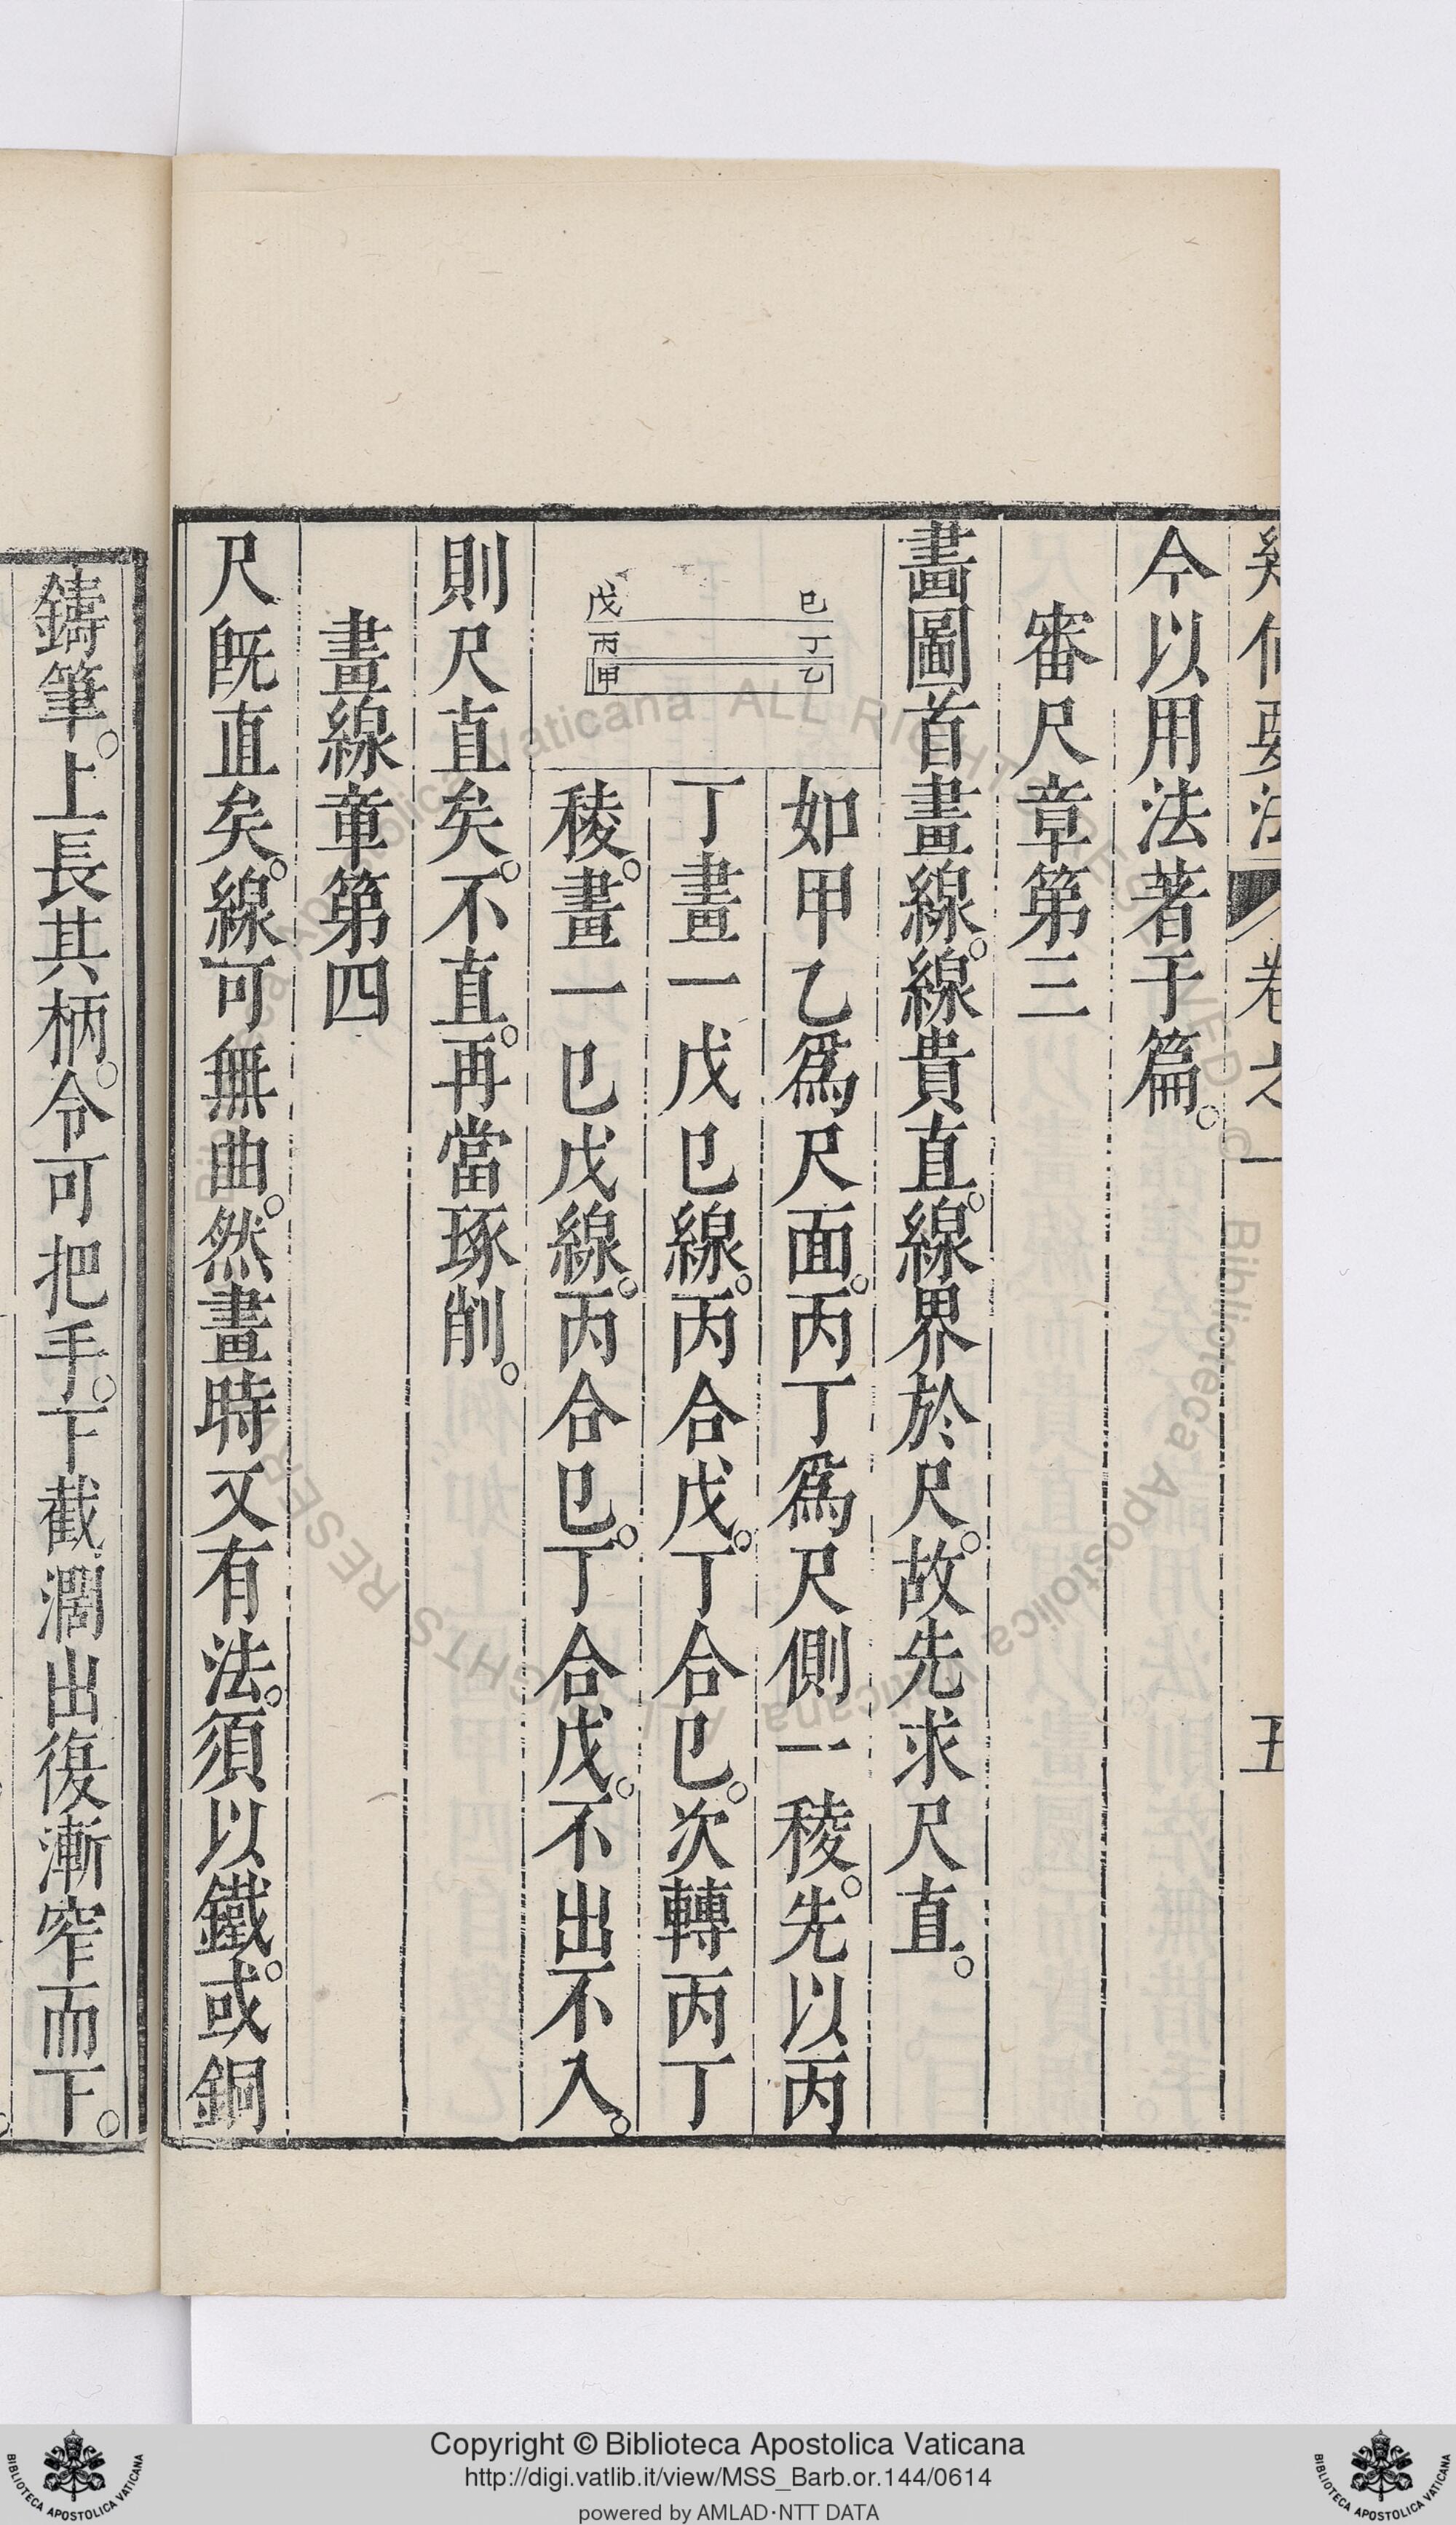 幾何要法 卷之一 五
今以用法著于篇。
審尺章第三
畫圖首畫線。線貴直。線界於尺。故先求尺直。
己 丁 乙
戊 丙 甲
如甲乙爲尺面。丙丁爲尺側一稜。先以丙
丁畫一戊巳線。丙合戊。丁合巳。次轉丙丁
稜。畫一巳戊線。丙合巳。丁合戊。不出不入。
則尺直矣。不直。再當琢削。
畫線章第四
尺旣直矣。線可無曲。然畫時又有法。須以鐵。或銅
鑄筆。上長其柄。令可把手。下截濶出復漸窄而下。
Copyright © Biblioteca Apostolica Vaticana
http://digi.vatlib.it/view/MSS_Barb.or.144/0614
powered by AMLAD·NTT DATA
BIBLIOTECA APOSTOLICA VATICANA
BIBLIOTECA APOSTOLICA VATICANA
© Biblioteca Apostolica Vaticana ALL RIGHTS RESERVED